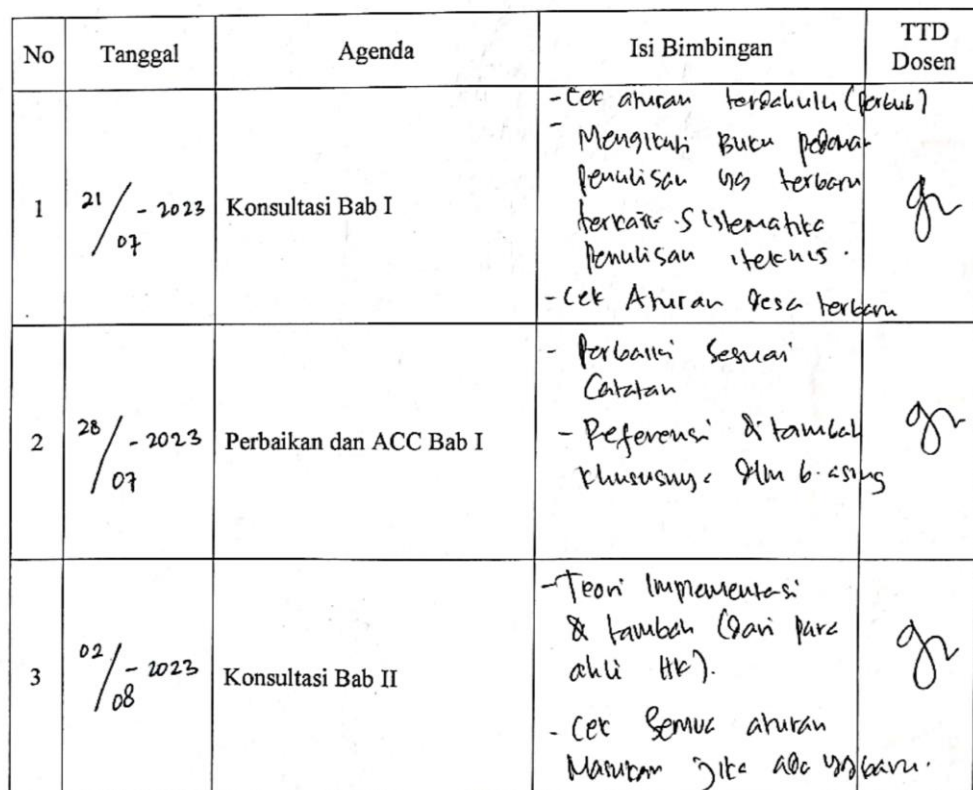 No Tanggal Agenda Isi Bimbingan TTD Dosen
1 21/07 - 2023 Konsultasi Bab I
- Cek aturan terdahulu (Perbub)
- Mengikuti Buku pedoman
penulisan yg terbaru
terkait sistematika
penulisan, teknis.
- Cek Aturan desa terbaru
2 28/07 - 2023 Perbaikan dan ACC Bab I
- Perbaiki Sesuai
Catatan
- Referensi ditambah
khususnya dlm b. asing
3 02/08 - 2023 Konsultasi Bab II
- Teori Implementasi
di tambah (dari para
ahli HK).
- Cek Semua aturan
Masukan jika ada yg baru.